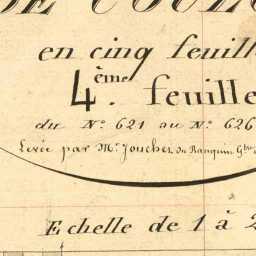 DE COULO
en cinq feuill
4ème. feuille
du N° 621 au N° 626
Levée par Mr. Joucher du Ranquin Gbre
Echelle de 1 à 2